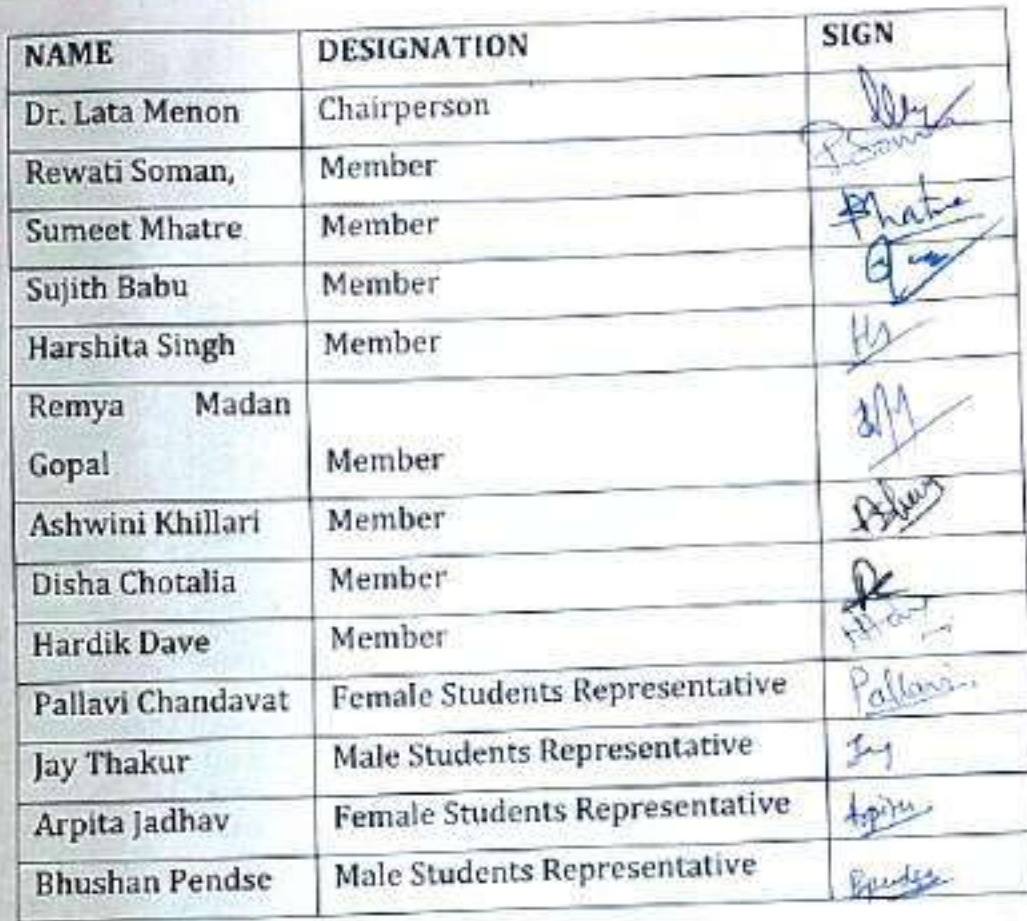 NAME DESIGNATION SIGN
Dr. Lata Menon Chairperson
Rewati Soman, Member
Sumeet Mhatre Member Mhatre
Sujith Babu Member
Harshita Singh Member HS
Remya Madan
Gopal Member
Ashwini Khillari Member
Disha Chotalia Member
Hardik Dave Member
Pallavi Chandavat Female Students Representative Pallavi
Jay Thakur Male Students Representative Jay
Arpita Jadhav Female Students Representative Arpita
Bhushan Pendse Male Students Representative